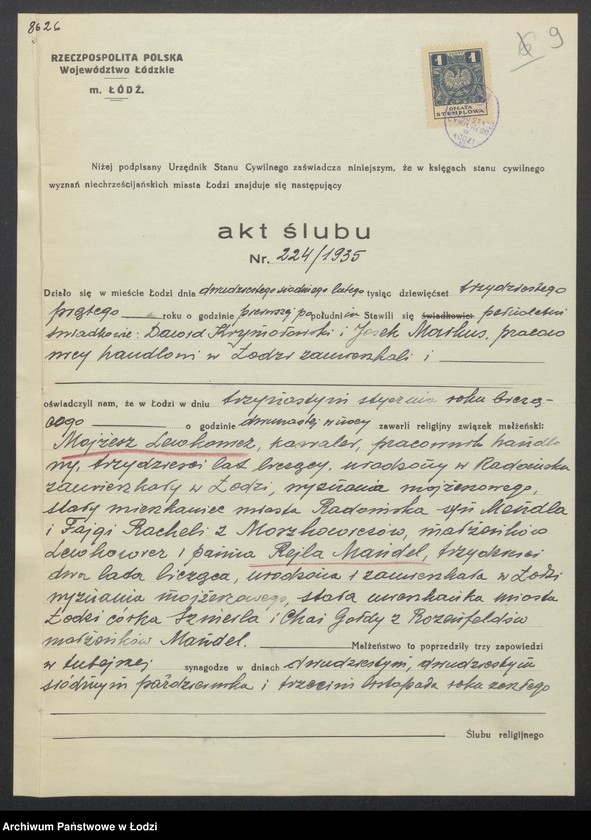 8626
9
RZECZPOSPOLITA POLSKA
Województwo Łódzkie
m. ŁÓDŹ.
1 ZŁOTY 1
OPŁATA
STEMPLOWA
Niżej podpisany Urzędnik Stanu Cywilnego zaświadcza niniejszym, że w księgach stanu cywilnego
wyznań niechrześcijańskich miasta Łodzi znajduje się następujący
akt ślubu
Nr. 224/1935
Działo się w mieście Łodzi dnia dwudziestego siódmego lutego tysiąc dziewięćset trzydziestego
piątego roku o godzinie pierwszej popołudniu Stawili się świadkowie pełnoletni
świadkowie: Dawid i Josek Markus, pracow
nicy handlowi w Łodzi zamieszkali i
oświadczyli nam, że w Łodzi w dniu trzynastym stycznia roku bieżą-
cego o godzinie dwunastej w nocy zawarli religijny związek małżeński:
Mojżesz Lewkowicz, kawaler, pracownik handlo
wy, trzydzieści lat liczący, urodzony w Radomsku
zamieszkały w Łodzi, wyznania mojżeszowego,
stały mieszkaniec miasta Radomska syn Mendla
i Fajgi Racheli z Moszkowiczów, małżonków
Lewkowicz i panna Rejla Mandel, trzydzieści
dwa lata licząca, urodzona i zamieszkała w Łodzi
wyznania mojżeszowego, stała mieszkanka miasta
Łodzi córka Szmerla i Chai Gołdy z Rozenfeldów
małżonków Mandel. Małżeństwo to poprzedziły trzy zapowiedzi
w tutejszej synagodze w dniach dwudziestym, dwudziestym
siódmym października i trzecim listopada roku zeszłego
Ślubu religijnego
Archiwum Państwowe w Łodzi